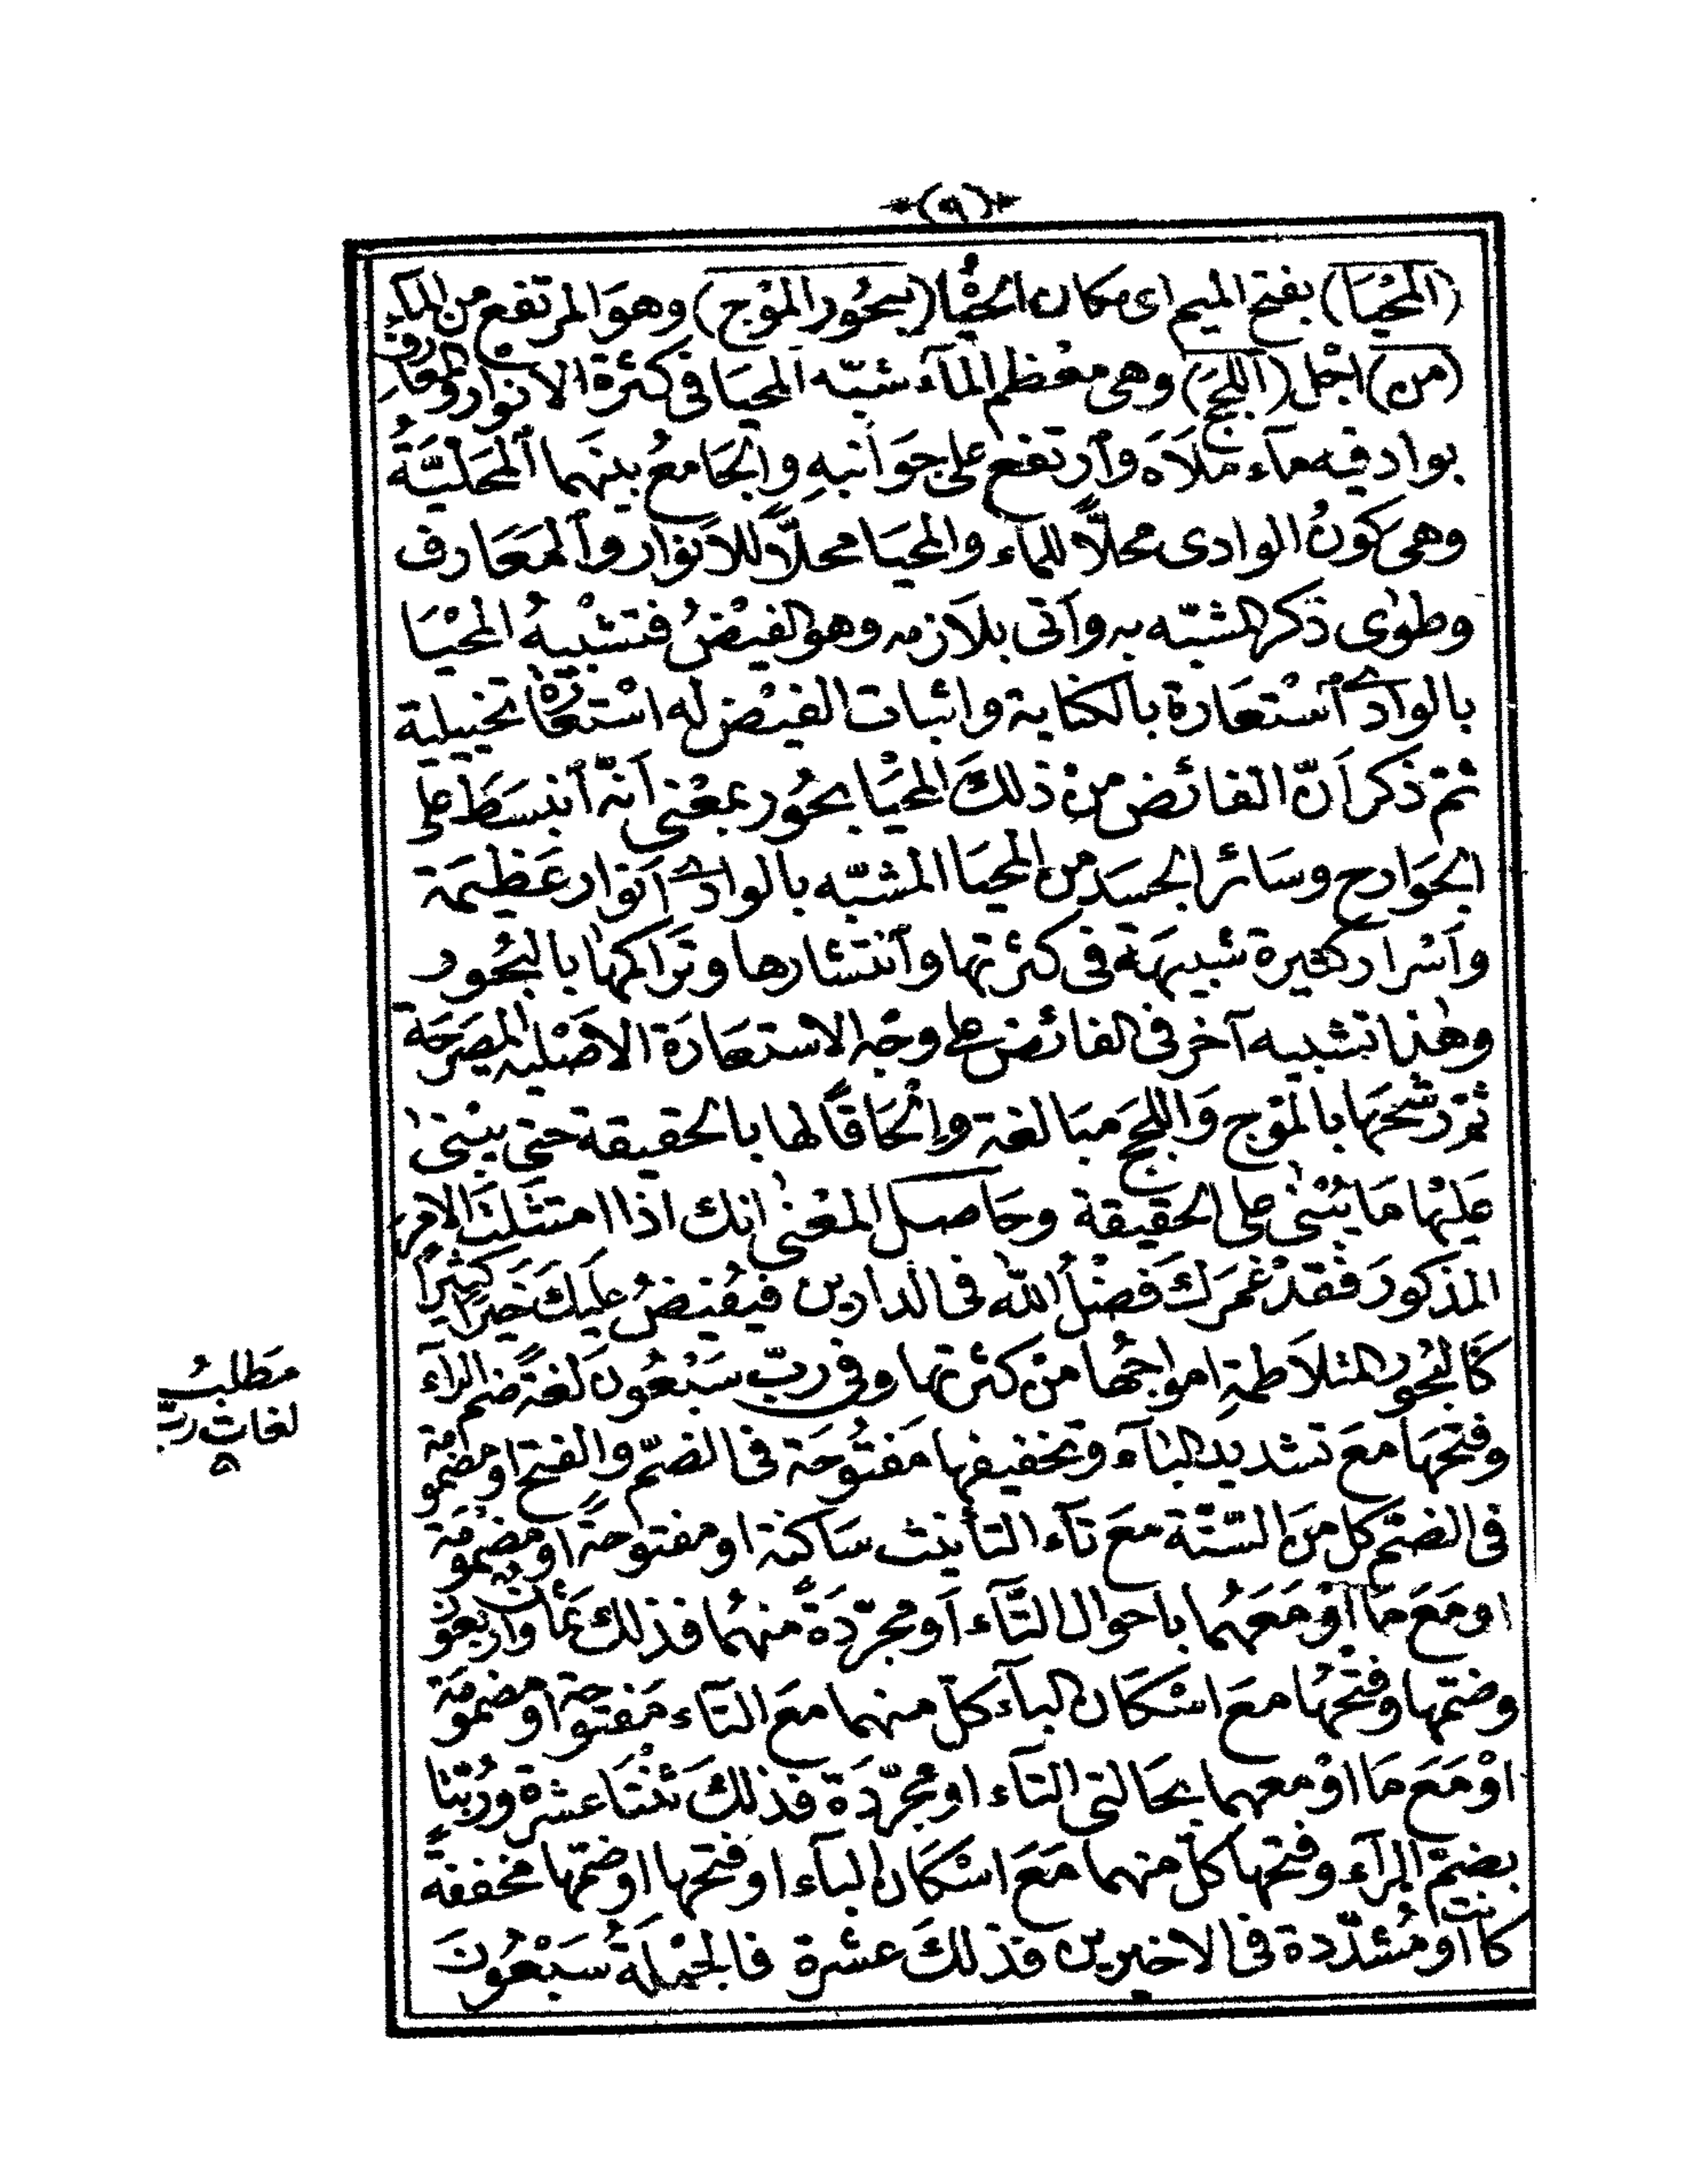 (٩)
(المَحْيَا) بفتح الميم اى مكان الحيا (بحُور المَوْج) وهوَ المرتفع من المآء
(من) اجْل (اللجَج) وهى معْظم المآء شبّه المحيَا فى كثرة الانوار والمعارف
بواد فيه مآء مَلَاَهَ وَاَرتفع على جوَانبهِ والجَامعُ بينَهما المحَليَّةُ
وهى كوْنُ الوادى محلاًّ للمآء والمحيَا محلاًّ للاَنوار والمعَارف
وطوٰى ذكر المشبّه به وآتى بلاَزمه وهو الفيْضُ فتشْبيهُ المحْيَا
بالوادے اسْتعَارة بالكناية واثبات الفيْض له اسْتعَارةٌ تخييلية
ثمّ ذكر اَنّ الفائض منْ ذلكَ المحْيَا بحُور بمعْنى اَنهّ اَنبسَطَ على
الجوَارح وسَائر الجسَد من المحيَا المشبّه بالوادے اَنوار عَظيمَة
وآسْرار كثيرة شبيهَة فى كثرتها وآنتشارها وترَاكمهَا بالبُحُور
وهٰذا تشبيه آخر فى الفائض على وجْه الاستعَارَة الاَصْلية المصَرحَة
ثمّ رَشحَهَا بالمَوْج وَاللجَج مبَالغة وإلْحَاقًا لها بالحقيقة حتى يبْنىٰ
عَليْهَا مَا يُبْنٰى على الحقيقة وحَاصل المعْنى انك اذا امتثَلتَ الامرَ
المذكورَ فقدْ غمَرَكَ فَضْلُ اللّٰه فى الدارين فيفيضُ عليكَ خيرًا كثيرًا
كَالبُحور المتلاَطمةِ امواجُها منْ كثرتها وفى ربّ سَبْعُونَ لغةً ضم الرآء
وفتحهَا معَ تشديد البآء وتخفيفها مَفتُوحَة فى الضمّ والفتح اومضمومة
فى الضمّ كل منَ السّتّة معَ تآء التأنيث سَاكنة او مفتوحةً او مضمومة
او مَعَ مَا اَوْ مَعَهُما باَحوال التَّآء اَو مجرّدَةً منهُما فذلك ثمَان وَاَربعون
وضمّها وفتحُهَا معَ اسْكَان البآء كلّ منهما معَ التّآء مَفتوحة او مضمومَة
اوْ مَعَ مَا اوْ معهما بحَالتى التآء او مجرّدَة فذلكَ ثنْتَا عشرة ورُبّتا
بضمّ الرآء وفتحها كلّ منهما مَعَ اسْكَان البآء او فتحها او ضمّها مخففة
كانت او مُشدّدة فى الاخيرين فذلكَ عشرة فالجُمْلَةُ سَبْعُونَ
مَطلبُ
لغات ربّ